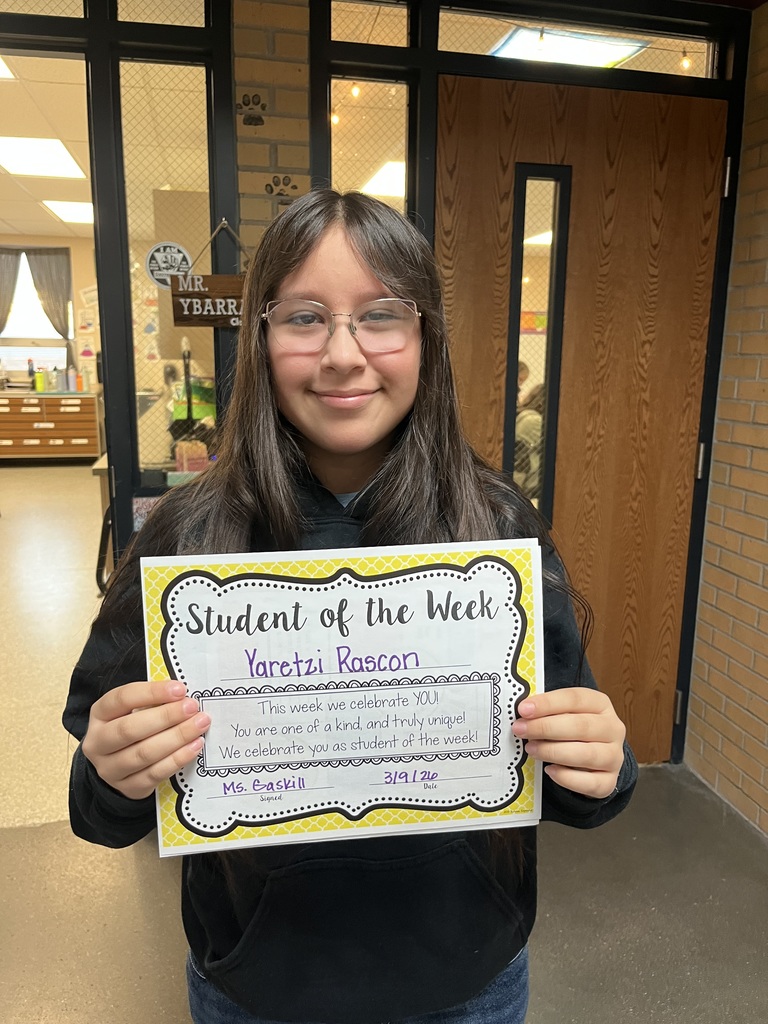 I AM
MR.
YBARRA
Student of the Week
Yaretzi Rascon
This week we celebrate YOU!
You are one of a kind, and truly unique!
We celebrate you as student of the week!
Ms. Gaskill
3/9/26
Signed
Date